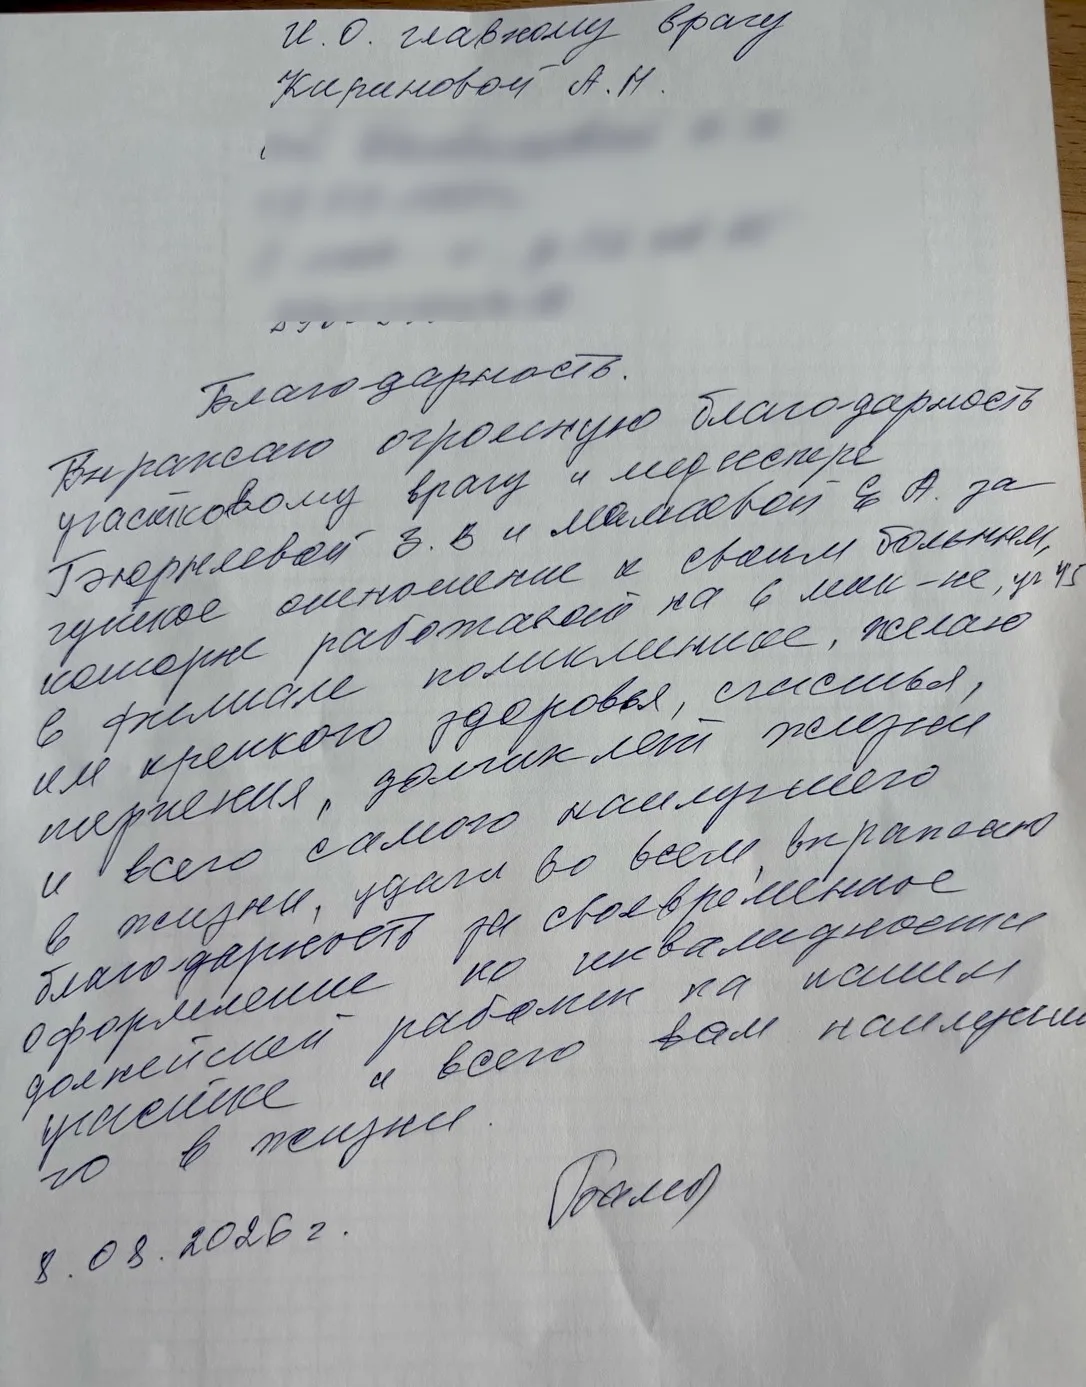 И.О. главному врачу
Кириновой А.Н.
Благодарность.
Выражаю огромную благодарность
участковому врачу и медсестре
З.В и Мамаевой Е А. за
чуткое отношение к своим больным,
которые работавой на 6 мик-не, уч 45
в филиале поликлинике, желаю
им крепкого здоровья, счастья,
терпения, долгих лет жизни
и всего самого наилучшего
в жизни, удачи во всем, выражаю
благодарность за своевременное
оформление по инвалидности
дольнейшей работы на нашем
участке и всего вам наилучше
го в жизни.
8.08.2026 г.